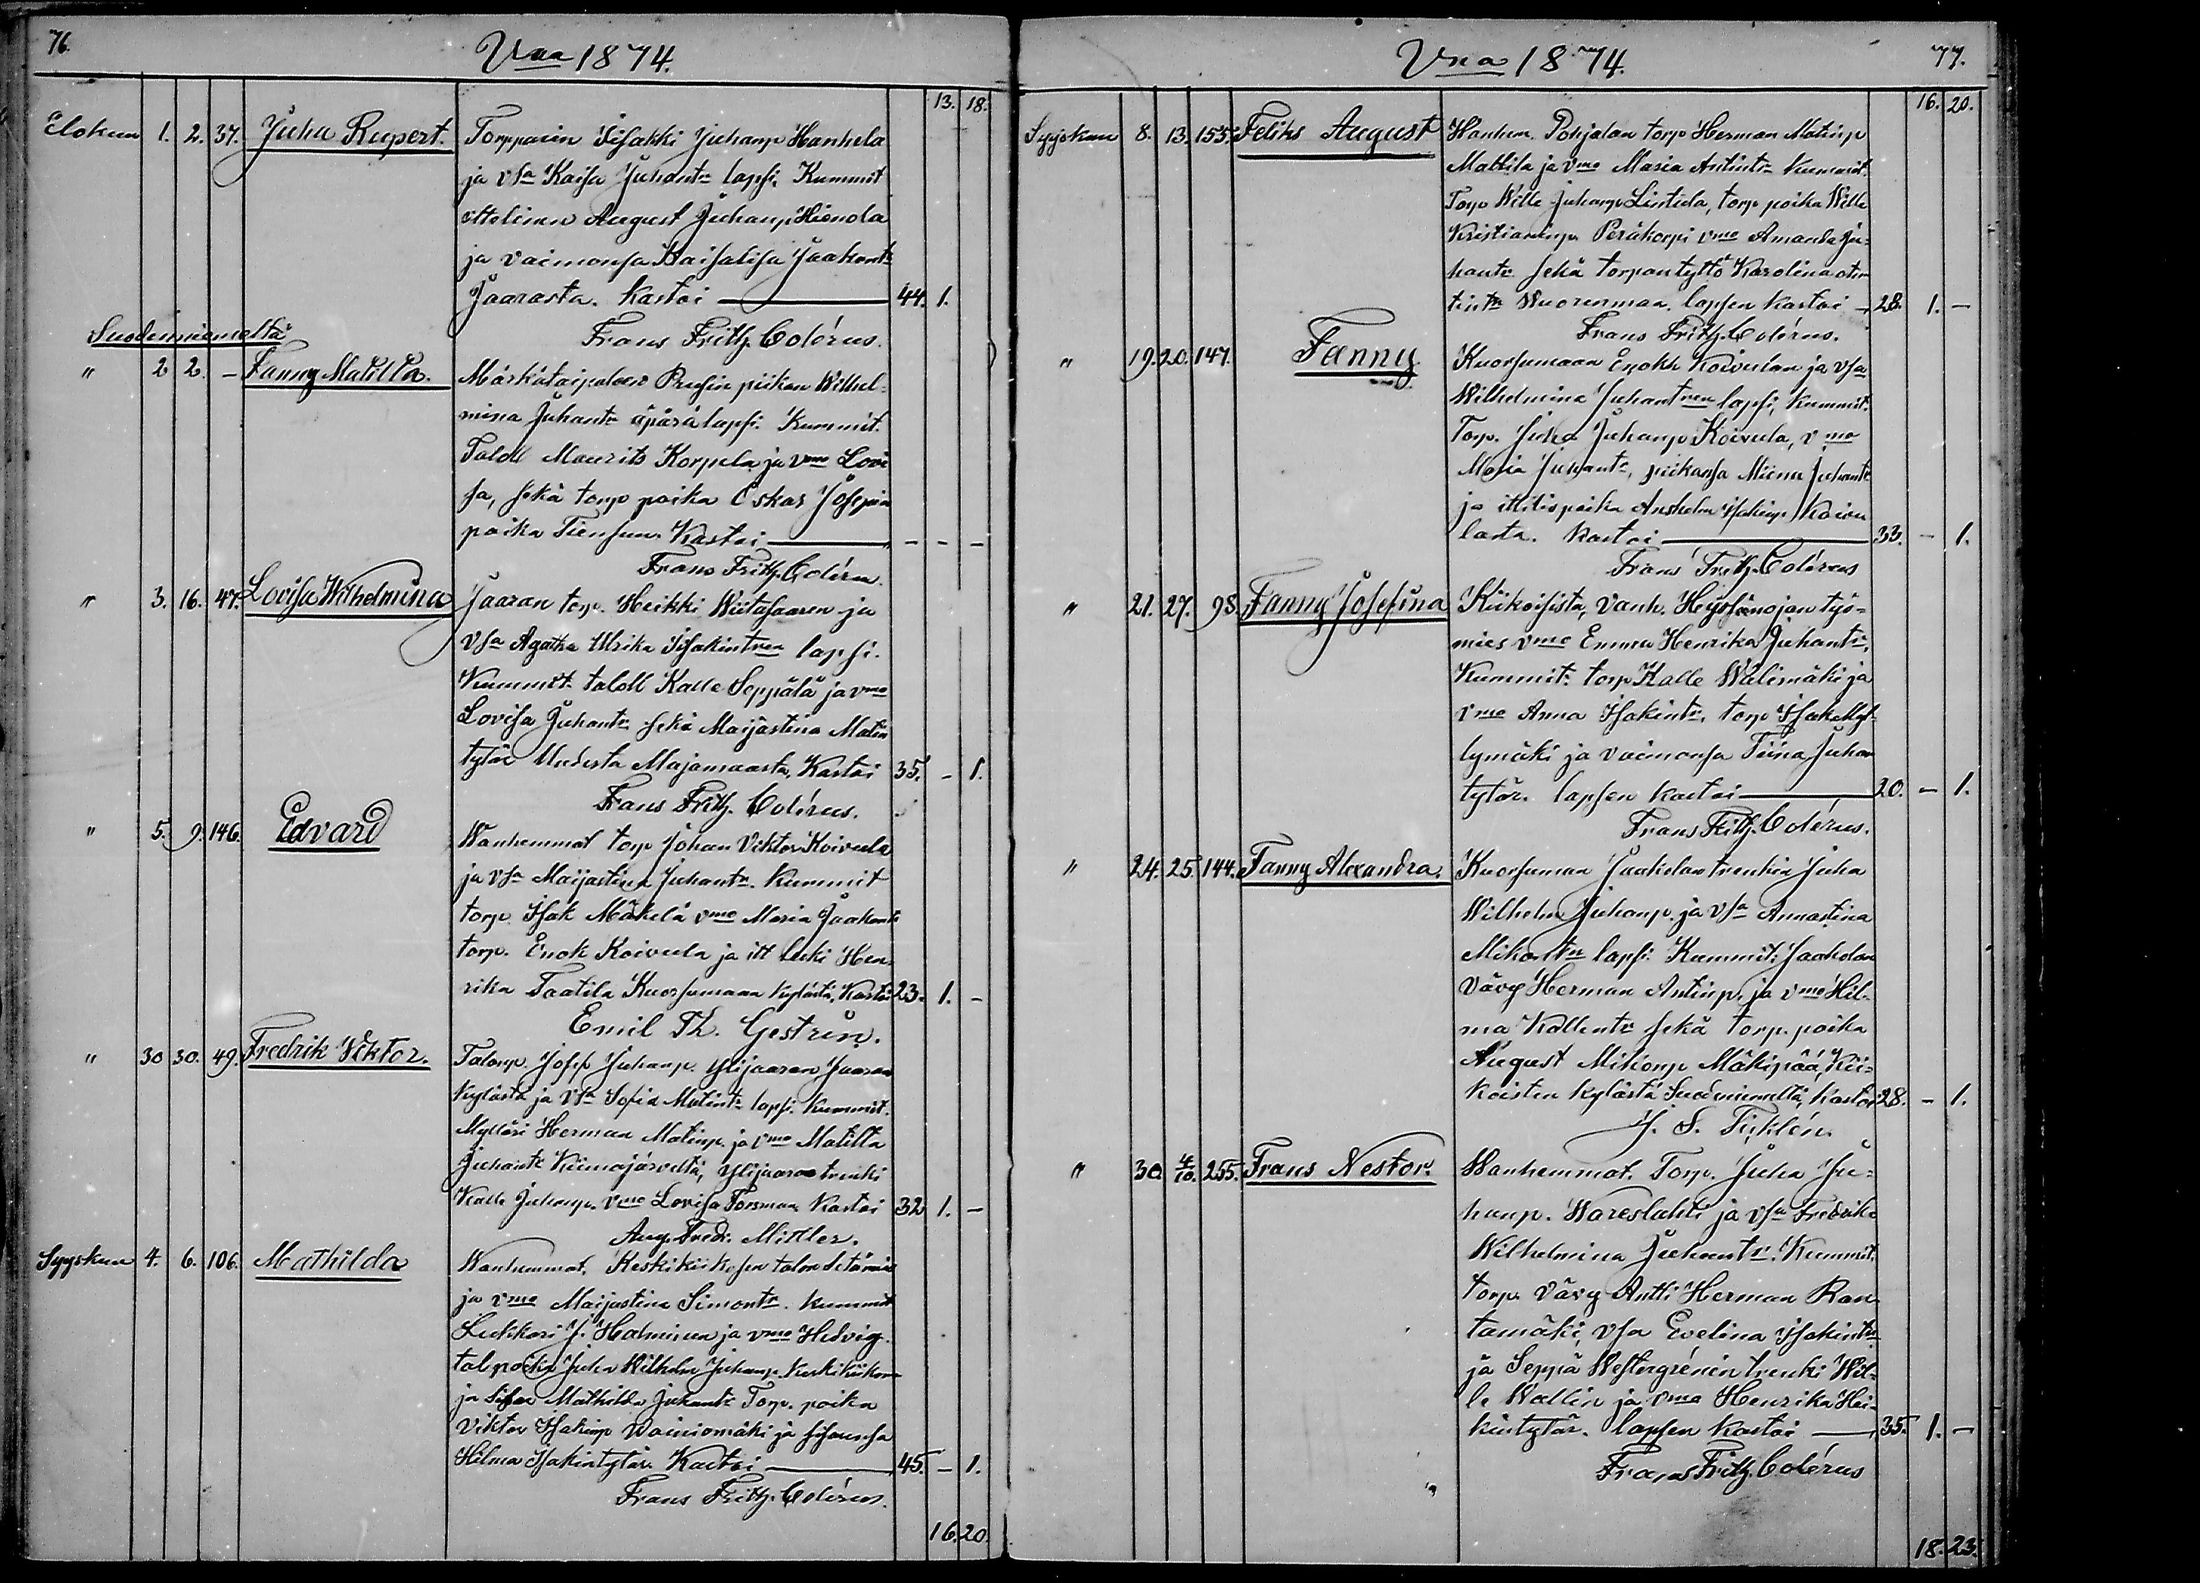 76.
Vna 1874.
13. 18.
Elokuu 1. 2. 37. Juha Rupert. Torpparin Iisakki Juhanp. Hanhela
ja vsa Kaisa Juhantr lapsi. Kummit
ittelinen August Juhanp. Hienola
ja vaimonsa Kaisalisa Jaakontr
Jaarasta. Kastoi — 44. 1.
Frans Fritz. Colérus.
Suodenniemeltä
" 2 2. – Fanny Matilta. Märkätaipaleen Prusin piikan Wilhel-
mina Juhantr äpärä lapsi. Kummit.
Taloll Maurits Korpela ja vmo Lovi
sa, sekä torp poika Oskar Josepin
poika Tiensuu. Kastoi — – – –
Frans Fritz. Colérus.
" 3. 16. 47. Lovisa Wilhelmina Jaaran torp. Heikki Wiitasaaren ja
vsa Agatha Ulrika Iisakintren lapsi.
Kummit taloll Kalle Seppälä ja vmo
Lovisa Juhantr sekä Maijastina Matin
tytär Uudesta Majamaasta, Kastoi 35. – 1.
Frans Fritz. Colérus.
" 5. 9. 146. Edvard Wanhemmat torp Johan Viktor Koivula
ja vsa Maijastina Juhantr. Kummit
torp. Isak Mäkelä vmo Maria Jaakontr
torp. Enok Koivula ja itt leski Hen-
rika Taatila Kuorsumaan kylästä, Kastoi 23. 1. –
Emil Th. Gestrin.
" 30 30. 49. Fredrik Viktor. Talonp. Josef Juhanp. Ylijaaran Jaaran
kylästä ja vsa Sofia Matintr lapsi. Kummit.
Mylläri Herman Matinp. ja vmo Matilta
Juhantr Kiimajärveltä, Ylijaaran trenki
Kalle Juhanp. vmo Lovisa Forsman Kastoi 32 1. –
Aug. Fredr. Mittler.
Syyskuu 4. 6. 106. Mathilda Wanhemmat. Keskikiikosen talon
ja vmo Maijastina Simontr. Kummit
Lukkari J. Halminen ja vmo Hedvig.
tal poika Juha Wilhelm Juhanp. Keskikiikonen
ja Mathilda Juhantr Torp. poika
Viktor Isakinp Vainiomäki ja sisarensa
Hilma Isakintytär. Kastoi — 45. – 1.
Frans Fritz. Colérus.
16. 20.
Vna 1874.
77.
16. 20.
Syyskuu 8. 13. 155. Feliks August Wanhem. Pohjalan torp Herman Matinp
Mattila ja vmo Maria Antintr Kummit.
Torp Wille Juhanp Lintula, torp poika Wille
Kristianinp. Peräkorpi vmo Amanda Ju-
hantr sekä torpan tyttö Karolina
tintr Wuorenmaa. lapsen kastoi – 28. 1. –
Frans Fritz. Colérus.
" 19. 20. 147. Fanny Kuorsumaan Enokki Koivulan ja vsa
Wilhelmina Juhantren lapsi, Kummit.
Torp. Juha Juhanp Koivula, vmo
Maria Juhantr, piikansa Miina Juhantr
ja ittitispoika Anshelm Isakinp Koivu
lasta. Kastoi — 33. – 1.
Frans Fritz. Colérus
" 21. 27. 98. Fanny Josefina Kiikoisista, vanh. Heyhänojan työ-
mies vmo Emma Henrika Juhantr,
Kummit: torp Kalle Wälimäki ja
vmo Anna Isakintr. torp Isak Myl-
lymäki ja vaimonsa Tiina Juhan
tytär. lapsen kastoi — 20. – 1.
Frans Fritz. Colérus.
" 24. 25. 144. Fanny Alexandra. Kuorsuman Jaakolan trenkin Juha
Wilhelm Juhanp. ja vsa Annastina
Mikontr lapsi. Kummit: Jaakolan
vävy Herman Antinp. ja vmo Hil-
ma Kallentr sekä torp. poika
August Mikonp Mäkipää, Kii-
koisten kylästä Suodenniemeltä, Kastoi 28. – 1.
J. S. Ticklén.
" 30. 4/10. 255. Frans Nestor. Wanhemmat. Torp. Juha Ju-
hanp. Wareslahti ja vsa Fredrika
Wilhelmina Juhantr. Kummit.
torp. vävy Antti Herman Ran-
tamäki, vsa Evelina Isakintr
ja Seppä Westergrénin trenki Wil-
le Wallin ja vmo Henrika Hei-
kintytär. lapsen kastoi — 35. 1. –
Frans Fritz. Colérus
18. 23.